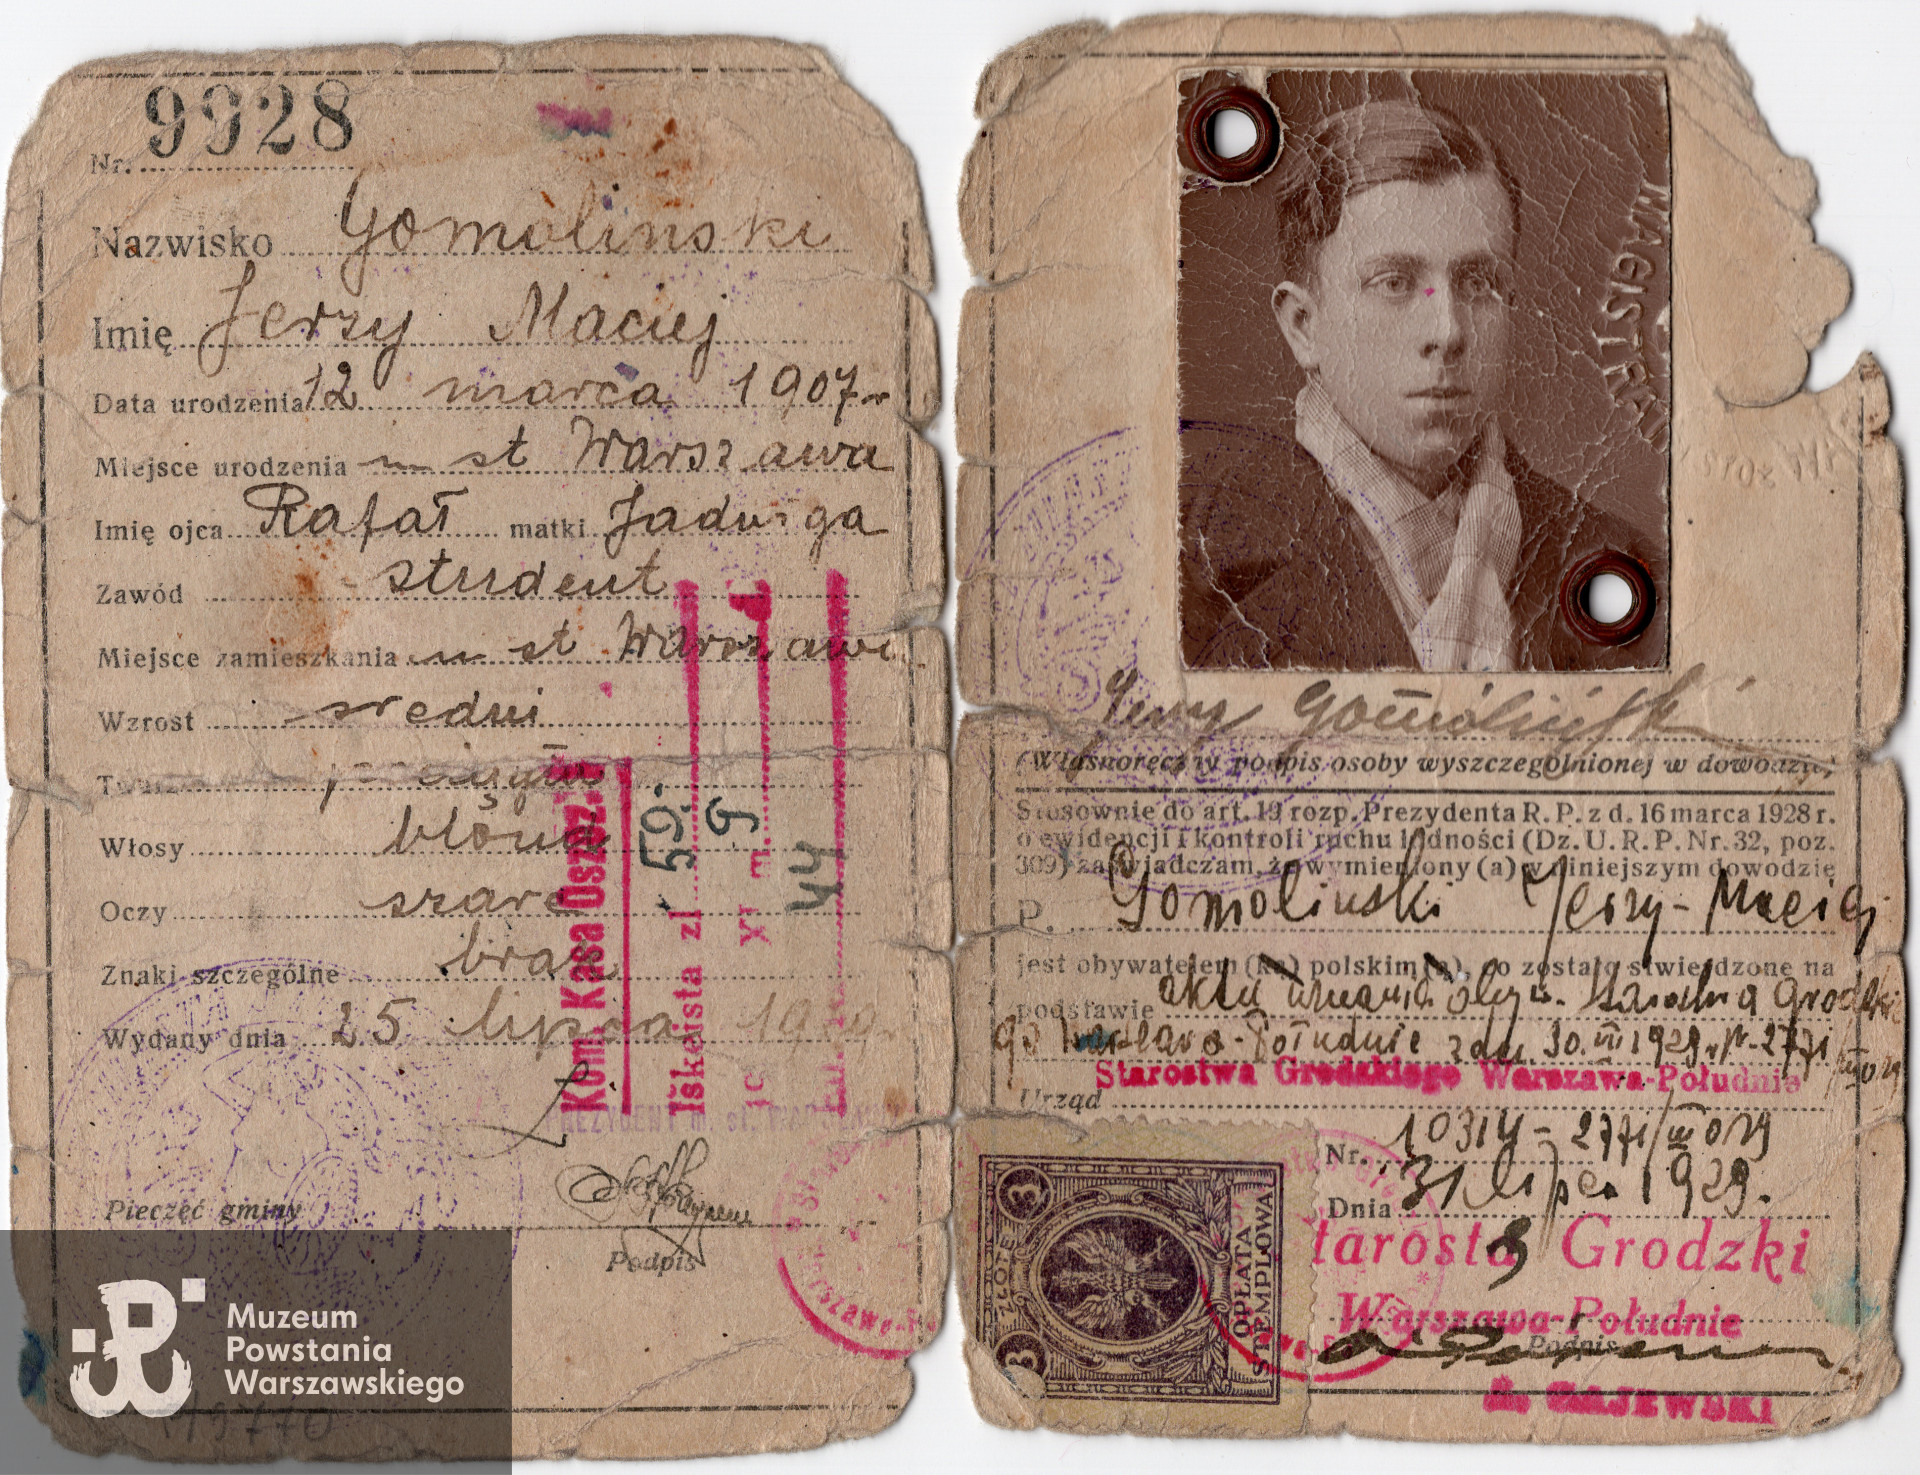 9928
Nr.
Nazwisko Gomolinski
Imię Jerzy Maciej
Data urodzenia 12 marca 1907 r
Miejsce urodzenia m st Warszawa
Imię ojca Rafał matki Jadwiga
Zawód student
Miejsce zamieszkania m st Warszawa
Wzrost średni
Twarz pociągła
Włosy blond
Oczy szare
Znaki szczególne brak
Wydany dnia 25 lipca 19
Kom. Kasa Oszcz.
Iśkeista zl 59.
XI 9
44
PREZYDENT m. st. WARSZAWY
Pieczęć gminy
Podpis
Muzeum
Powstania
Warszawskiego
49770
MAGISTRAT
Jerzy Gomoliński
(Własnoręczny podpis osoby wyszczególnionej w dowodzie)
Stosownie do art. 19 rozp. Prezydenta R. P. z d. 16 marca 1928 r.
o ewidencji i kontroli ruchu ludności (Dz. U. R. P. Nr. 32, poz.
309) zaświadczam, że wymieniony (a) w niniejszym dowodzie
P. Gomolinski Jerzy-Maciej
jest obywatelem (ką) polskim (ą), co zostało stwierdzone na
podstawie aktu uznania obyw. Starostwa Grodzkie
go Warszawa-Południe z dn. 30. VII 1929 r. Nr. 2771/III 029
Starostwa Grodzkiego Warszawa-Południe
Urząd
Nr. 10314-2771/III 029
Dnia 31 lipca 1929.
Starosta Grodzki
Warszawa-Południe
Podpis
GAJEWSKI
3
ZŁOTE
3
OPŁATA
STEMPLOWA